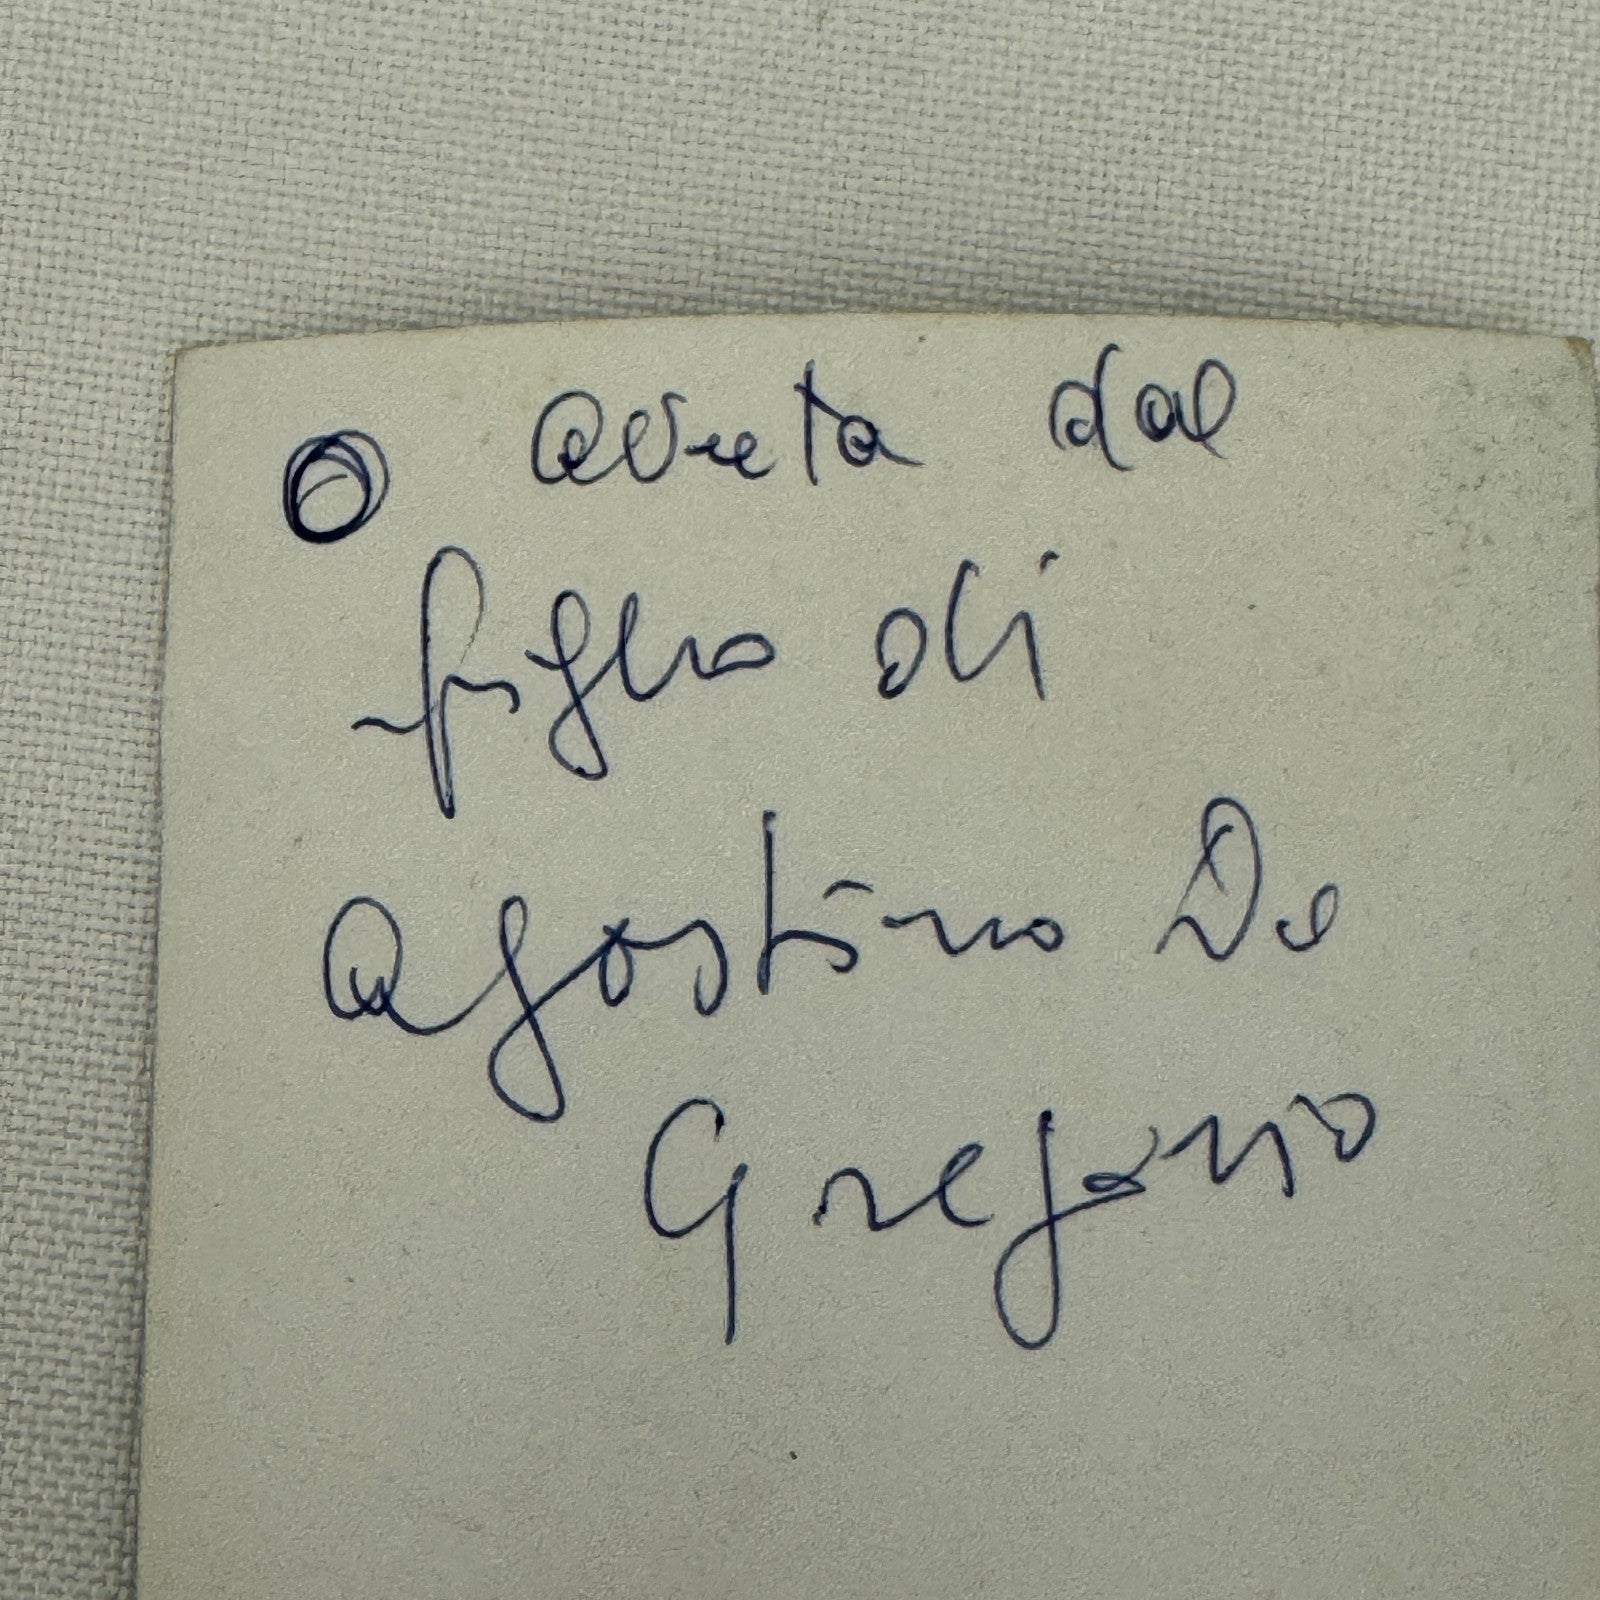 avuta dal
figlio di
Agostino De
Gregorio